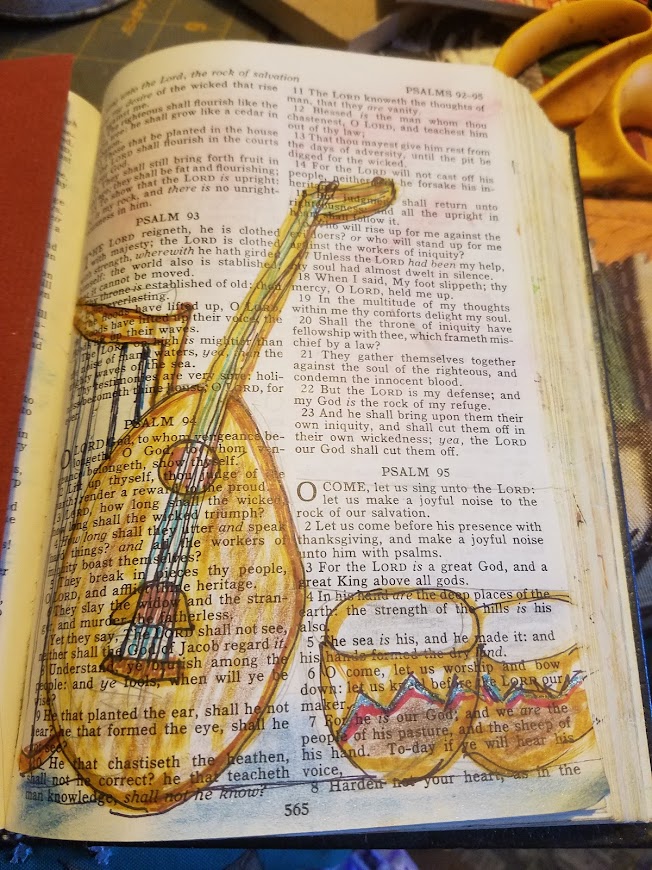 unto the Lord, the rock of salvation
PSALMS 92-95
desire of the wicked that rise
me.
righteous shall flourish like the
he shall grow like a cedar in
that be planted in the house
LORD shall flourish in the courts
God.
They shall still bring forth fruit in
they shall be fat and flourishing;
To show that the LORD is upright:
my rock, and there is no unright-
in him.
PSALM 93
LORD reigneth, he is clothed
with majesty; the LORD is clothed
strength, wherewith he hath girded
the world also is stablished,
cannot be moved.
throne is established of old: thou
everlasting.
have lifted up, O LORD,
have lifted up their voice; the
up their waves.
The LORD high is mightier than
noise of many waters, yea, than the
waves of the sea.
Thy testimonies are very sure: holi-
becometh thine house, O LORD, for
PSALM 94
O LORD God, to whom vengeance be-
longeth, O God, to whom ven-
geance belongeth, show thyself.
Lift up thyself, thou judge of the
render a reward to the proud.
LORD, how long shall the wicked,
long shall the wicked triumph?
How long shall they utter and speak
things? and all the workers of
boast themselves?
They break in pieces thy people,
O LORD, and afflict thine heritage.
They slay the widow and the stran-
ger, and murder the fatherless.
Yet they say, The LORD shall not see,
neither shall the God of Jacob regard it.
Understand, ye brutish among the
people: and ye fools, when will ye be
wise?
9 He that planted the ear, shall he not
hear? he that formed the eye, shall he
not see?
10 He that chastiseth the heathen,
shall not he correct? he that teacheth
man knowledge, shall not he know?
11 The LORD knoweth the thoughts of
man, that they are vanity.
12 Blessed is the man whom thou
chastenest, O LORD, and teachest him
out of thy law;
13 That thou mayest give him rest from
the days of adversity, until the pit be
digged for the wicked.
14 For the LORD will not cast off his
people, neither will he forsake his in-
heritance.
15 But judgment shall return unto
righteousness: and all the upright in
heart shall follow it.
16 Who will rise up for me against the
evildoers? or who will stand up for me
against the workers of iniquity?
17 Unless the LORD had been my help,
my soul had almost dwelt in silence.
18 When I said, My foot slippeth; thy
mercy, O LORD, held me up.
19 In the multitude of my thoughts
within me thy comforts delight my soul.
20 Shall the throne of iniquity have
fellowship with thee, which frameth mis-
chief by a law?
21 They gather themselves together
against the soul of the righteous, and
condemn the innocent blood.
22 But the LORD is my defense; and
my God is the rock of my refuge.
23 And he shall bring upon them their
own iniquity, and shall cut them off in
their own wickedness; yea, the LORD
our God shall cut them off.
PSALM 95
O COME, let us sing unto the LORD:
let us make a joyful noise to the
rock of our salvation.
2 Let us come before his presence with
thanksgiving, and make a joyful noise
unto him with psalms.
3 For the LORD is a great God, and a
great King above all gods.
4 In his hand are the deep places of the
earth: the strength of the hills is his
also.
5 The sea is his, and he made it: and
his hands formed the dry land.
6 O come, let us worship and bow
down: let us kneel before the LORD our
maker.
7 For he is our God; and we are the
people of his pasture, and the sheep of
his hand. To-day if ye will hear his
voice,
8 Harden not your heart, as in the
565